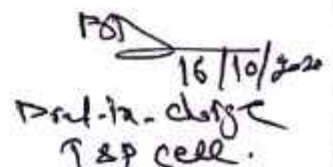 16/10/2020
Prof-in-charge
T&P cell.